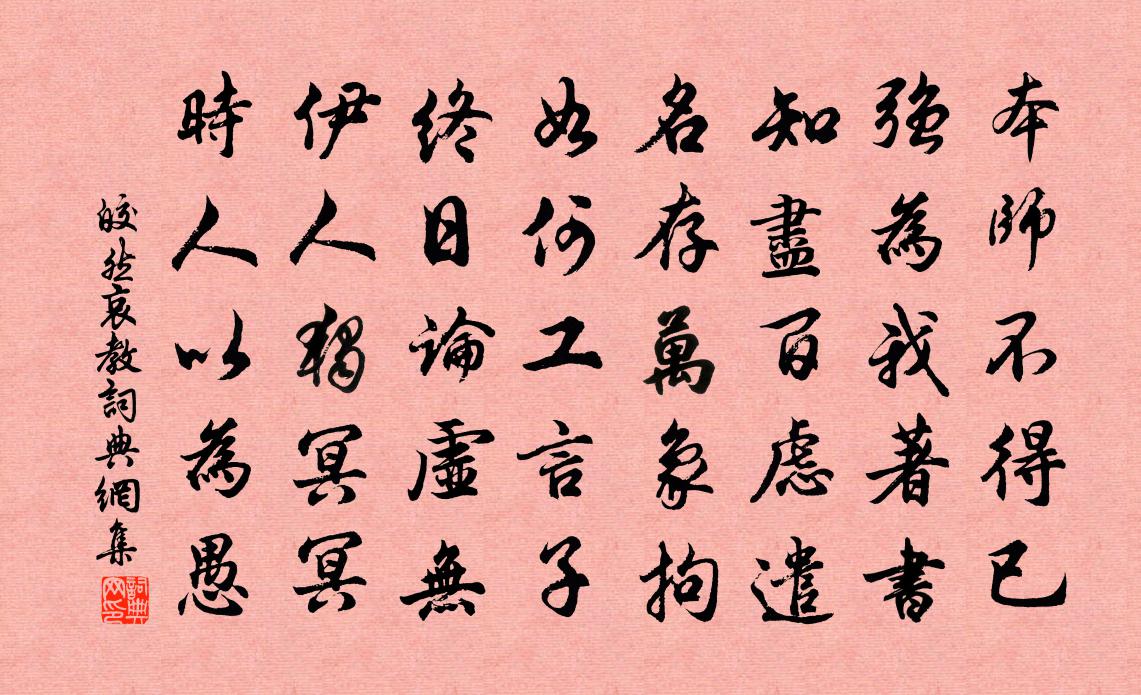 本師不得已
強為我著書
知盡百慮遣
名存萬象拘
如何工言子
終日論虛無
伊人獨冥冥
時人以為愚
皎然哀教詞典網集
詞典網印